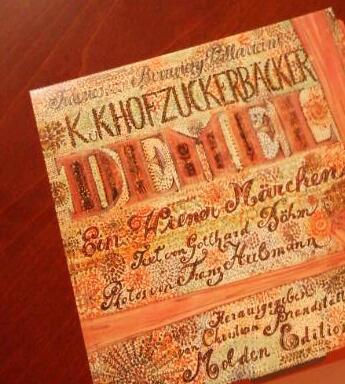 K.u.K HOFZUCKERBÄCKER
DEMEL
Ein Wiener Märchen
Text von Gotthard Böhm
Photos von Franz Hubmann
Herausgegeben
von Christian Brandstätt
Molden Edition